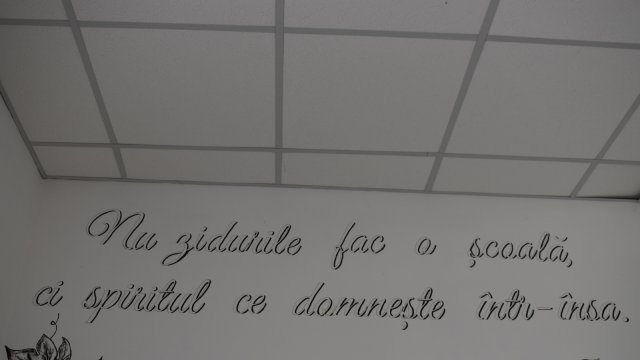 Nu zidurile fac o școală,
ci spiritul ce domnește într-însa.